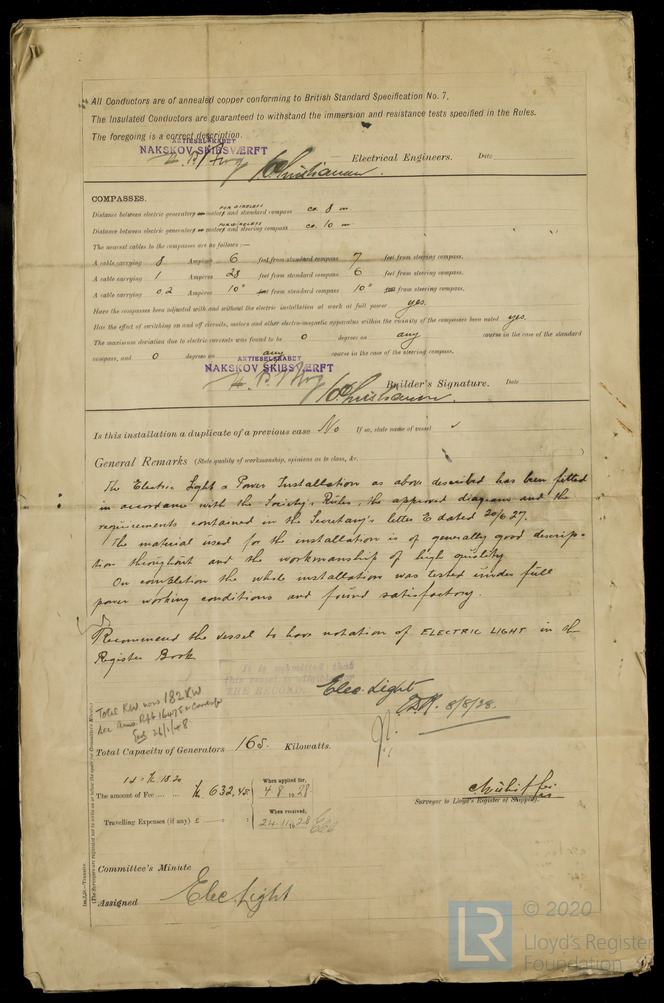 All Conductors are of annealed copper conforming to British Standard Specification No. 7.
The Insulated Conductors are guaranteed to withstand the immersion and resistance tests specified in the Rules.
The foregoing is a correct description.
AKTIESELSKABET
NAKSKOV SKIBSVÆRFT
Electrical Engineers. Date
COMPASSES.
FOR WIRELESS
Distance between electric generators or motors and standard compass ca. 8 m
FOR WIRELESS
Distance between electric generators or motors and steering compass ca. 10 m
The nearest cables to the compasses are as follows:—
A cable carrying 8 Ampères 6 feet from standard compass 7 feet from steering compass.
A cable carrying 1 Ampères 28 feet from standard compass 6 feet from steering compass.
A cable carrying 0.2 Ampères 10" feet from standard compass 10" feet from steering compass.
Have the compasses been adjusted with and without the electric installation at work at full power yes.
Has the effect of switching on and off circuits, motors and other electro-magnetic apparatus within the vicinity of the compasses been noted yes.
The maximum deviation due to electric currents was found to be 0 degrees on any course in the case of the standard
compass, and 0 degrees on any course in the case of the steering compass.
AKTIESELSKABET
NAKSKOV SKIBSVÆRFT
Builder's Signature. Date
Is this installation a duplicate of a previous case No If so, state name of vessel ✓
General Remarks (State quality of workmanship, opinions as to class, &c.
The Electric Light & Power Installation as above described has been fitted
in accordance with the Society's Rules, the approved diagrams and the
requirements contained in the Secretary's letter E dated 20/6 27.
The material used for the installation is of generally good descrip-
tion throughout and the workmanship of high quality
On completion the whole installation was tested under full
power working conditions and found satisfactory.
Recommend the vessel to have notation of ELECTRIC LIGHT in the
Register Book
It is submitted that
this vessel is eligible for
THE RECORD.
Elec. Light
8/8/28.
Total KW now 182 KW.
Total Capacity of Generators 165. Kilowatts.
The amount of Fee Kr. 632,45
When applied for,
4.8.1928
Travelling Expenses (if any) £
When received,
24.11.1928
Surveyor to Lloyd's Register of Shipping.
Committee's Minute
Assigned Elec. Light
(The Surveyors are requested not to write on or below the space for Committee's Minute.)
LR
© 2020
Lloyd's Register
Foundation